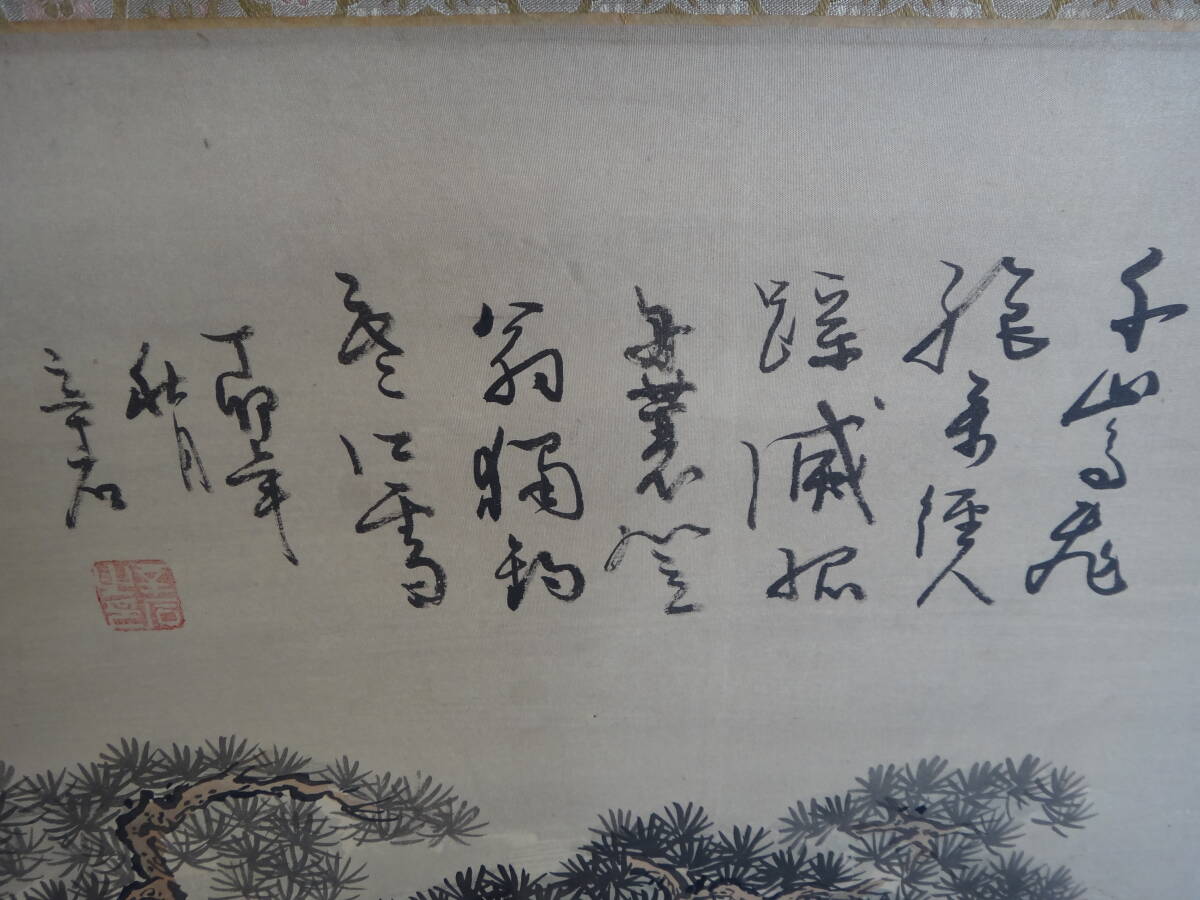 千山鳥飛
絶万徑人
蹤滅孤
舟蓑笠
翁獨釣
寒江雪
丁卯年
秋月
石